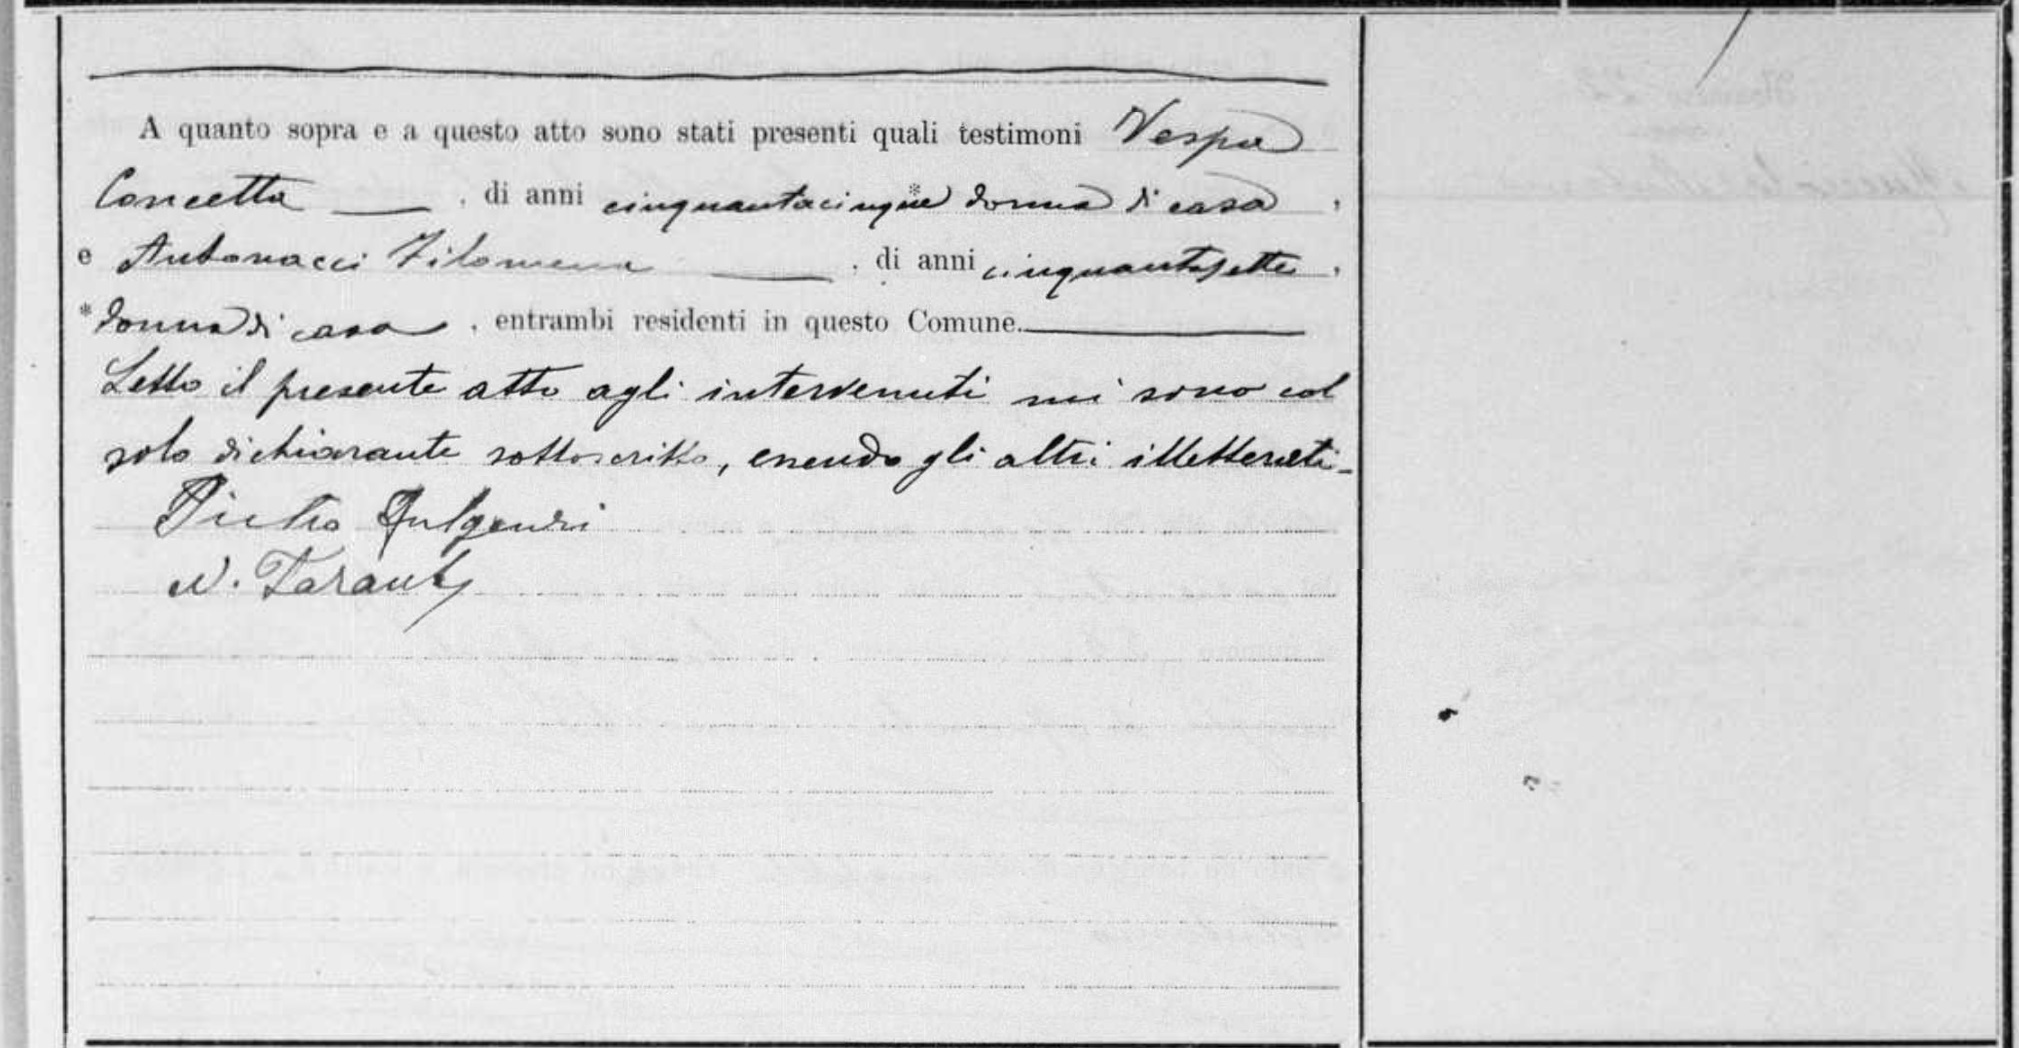 A quanto sopra e a questo atto sono stati presenti quali testimoni Vespa
Concetta , di anni cinquantacinque donna di casa ,
e Antonacci Filomena , di anni cinquantasette ,
* donna di casa , entrambi residenti in questo Comune.
Letto il presente atto agli intervenuti mi sono col
solo dichiarante sottoscritto, essendo gli altri illetterati-
Pietro Fulgenzi
N. Taranti